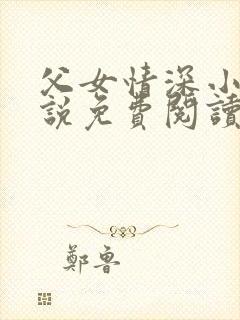 父女情深小
說免費閱讀
鄭魯